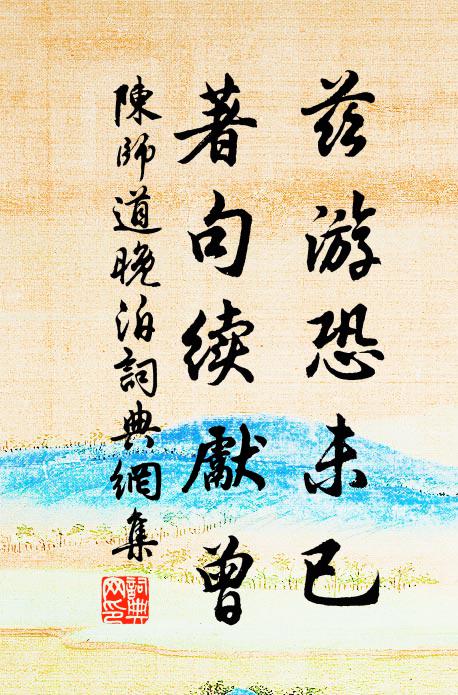 茲游恐未已
著句續獻曾
陳師道晚泊詞典網集
詞典网印